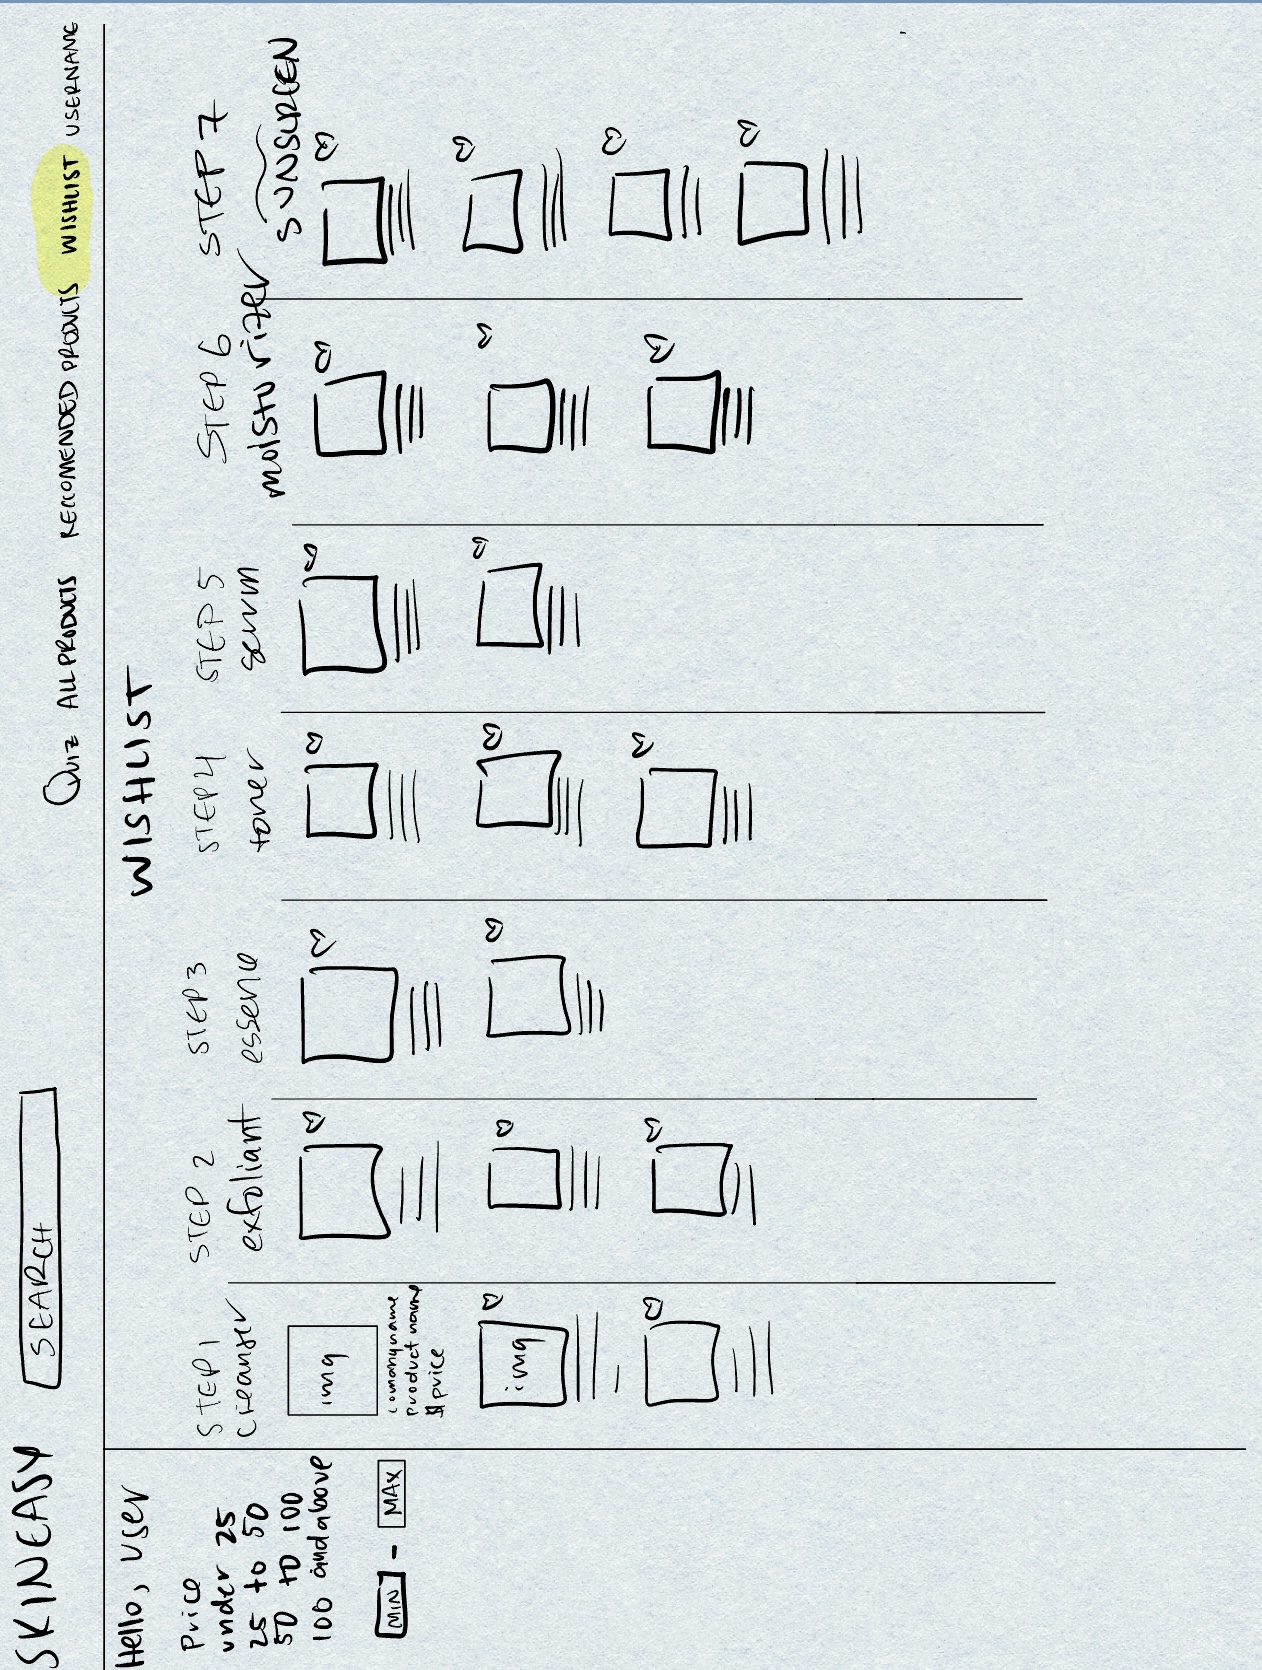 SKINEASY
SEARCH
QUIZ ALL PRODUCTS RECCOMENDED PRODUCTS WISHLIST USERNAME
Hello, user
Price
under 25
25 to 50
50 to 100
100 and above
MIN - MAX
WISHLIST
STEP 1
cleanser
img
comanyname
product name
$ price
img
STEP 2
exfoliant
STEP 3
essence
STEP 4
toner
STEP 5
serum
STEP 6
moisturizer
STEP 7
SUNSCREEN